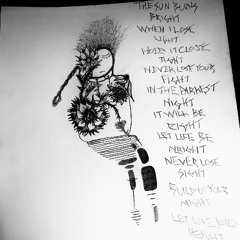 THE SUN BURNS
BRIGHT
WHEN I LOSE
LIGHT
HOLD IT CLOSE,
TIGHT
NEVER LOSE YOUR
FIGHT
IN THE DARKEST
NIGHT
IT WILL BE
RIGHT
LET LIFE BE
ALRIGHT
NEVER LOSE
SIGHT
BUILD UP YOUR
MIGHT
LET LOVE
HEIGHT